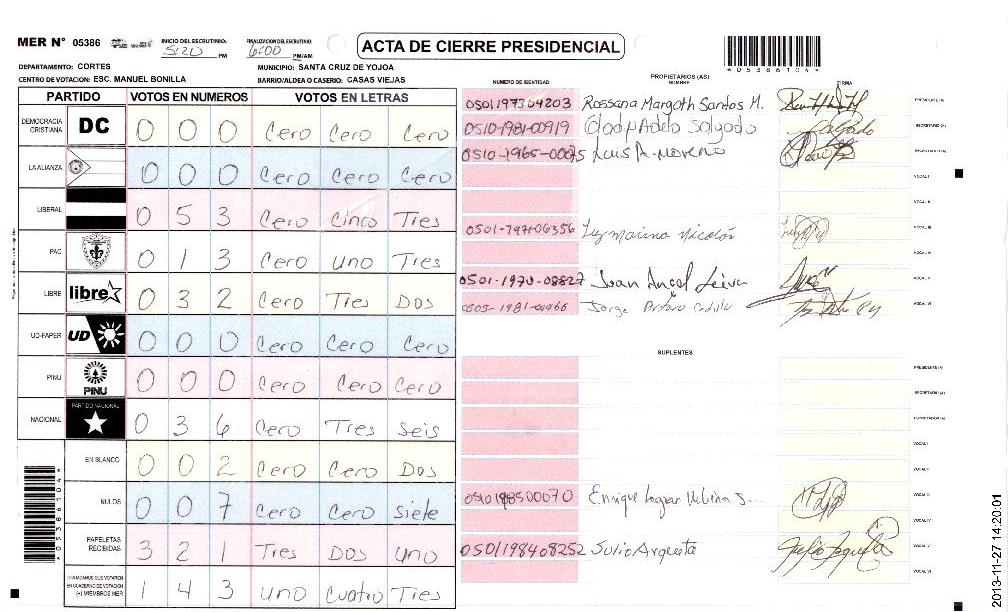 MER N° 05386 INICIO DEL ESCRUTINIO: 5:20 PM FINALIZACION DEL ESCRUTINIO 6:00 PM/AM
ACTA DE CIERRE PRESIDENCIAL
*05386104*
DEPARTAMENTO: CORTES MUNICIPIO: SANTA CRUZ DE YOJOA
CENTRO DE VOTACION: ESC. MANUEL BONILLA BARRIO/ALDEA O CASERIO: CASAS VIEJAS
PARTIDO VOTOS EN NUMEROS VOTOS EN LETRAS
DEMOCRACIA CRISTIANA DC 0 0 0 Cero Cero Cero
LA ALIANZA 0 0 0 Cero Cero Cero
LIBERAL 0 5 3 Cero Cinco Tres
PAC 0 1 3 Cero uno Tres
LIBRE libre 0 3 2 Cero Tres Dos
UD-FAPER UD 0 0 0 Cero Cero Cero
PINU PINU 0 0 0 Cero Cero Cero
NACIONAL PARTIDO NACIONAL 0 3 6 Cero Tres Seis
EN BLANCO 0 0 2 Cero Cero Dos
NULOS 0 0 7 Cero Cero Siete
PAPELETAS RECIBIDAS 3 2 1 Tres Dos uno
CIUDADANOS QUE VOTARON EN CUADERNO DE VOTACION (+) MIEMBROS MER 1 4 3 uno Cuatro Tres
*05386104*
NUMERO DE IDENTIDAD PROPIETARIOS (AS) NOMBRE FIRMA
0501197304203 Rossana Margoth Santos M. PRESIDENTE (A)
0510-1981-00919 Salgado SECRETARIO (A)
0510-1965-00075 Luis A. Moreno ESCRUTADOR (A)
VOCAL I
VOCAL II
Luz Marina Nicolás VOCAL III
VOCAL IV
0501-1970-08827 Juan Angel Leiva VOCAL V
0505-1981-00966 Jorge Arturo VOCAL VI
SUPLENTES
PRESIDENTE (A)
SECRETARIO (A)
ESCRUTADOR (A)
VOCAL I
VOCAL II
0510198500070 Enrique VOCAL III
VOCAL IV
0501198408252 Julio Argueta VOCAL V
VOCAL VI
2013-11-27 14:20:01